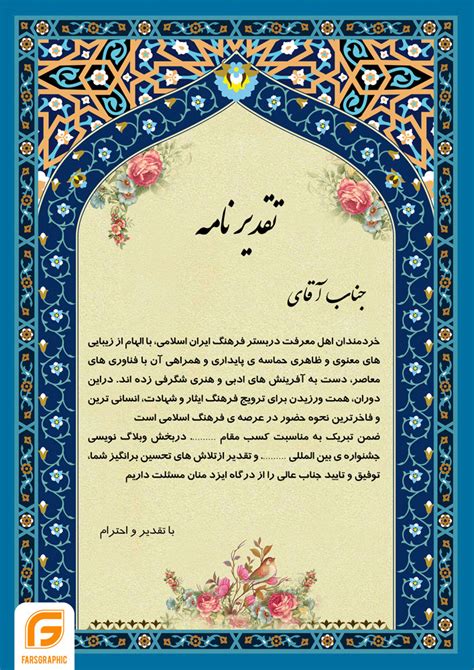 تقدیر نامه
جناب آقای
خردمندان اهل معرفت دربستر فرهنگ ایران اسلامی، با الهام از زیبایی
های معنوی و ظاهری حماسه ی پایداری و همراهی آن با فناوری های
معاصر، دست به آفرینش های ادبی و هنری شگرفی زده اند. دراین
دوران، همت ورزیدن برای ترویج فرهنگ ایثار و شهادت، انسانی ترین
و فاخرترین نحوه حضور در عرصه ی فرهنگ اسلامی است
ضمن تبریک به مناسبت کسب مقام ..........، دربخش وبلاگ نویسی
جشنواره ی بین المللی ..........، و تقدیر ازتلاش های تحسین برانگیز شما،
توفیق و تایید جناب عالی را از درگاه ایزد منان مسئلت داریم
با تقدیر و احترام
FARSGRAPHIC